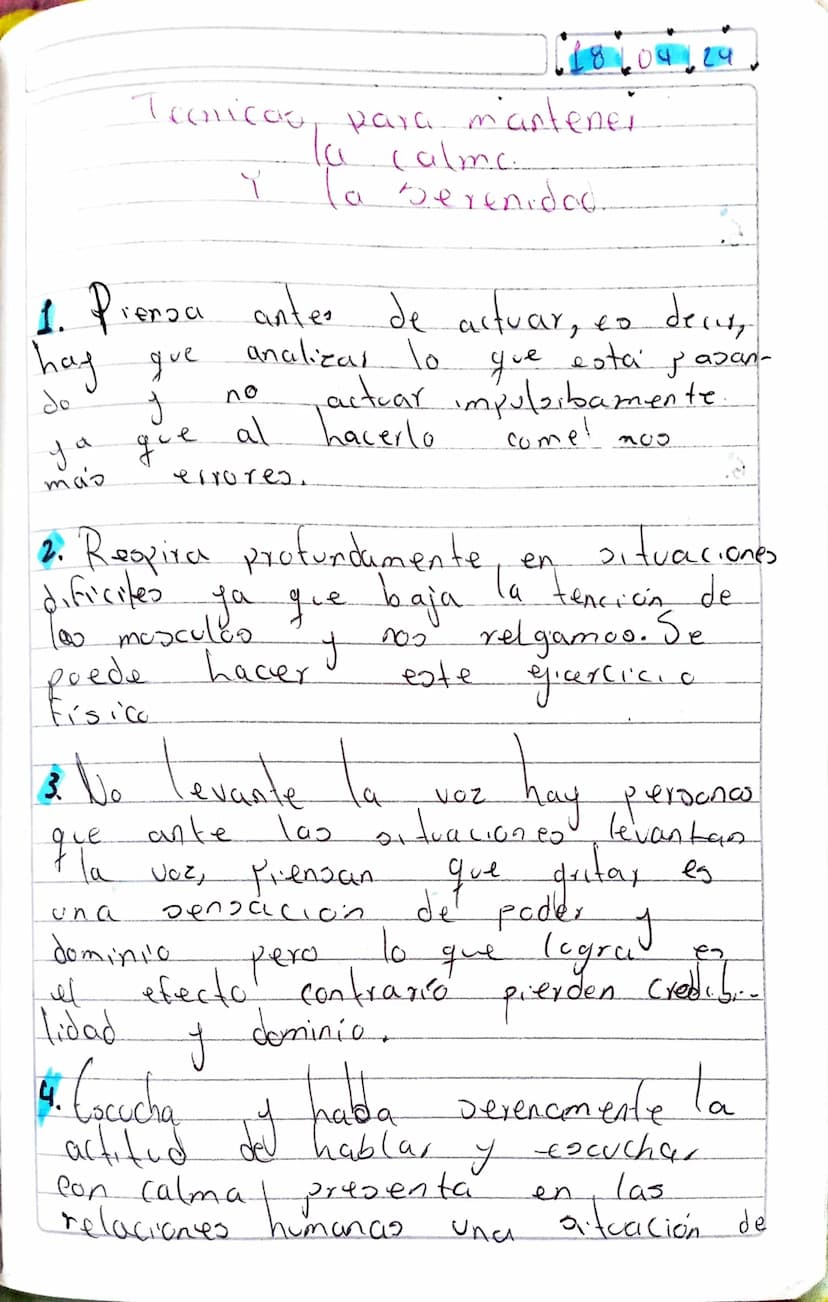 18 04 24
Tecnicas para mantener
la calma
Y la serenidad.
1. Piensa antes de actuar, es decir,
hay que analizar lo que está pasan-
do y no actuar impulsibamente
ya que al hacerlo cometmos
más errores.
2. Respira profundamente en situaciones
dificiles ya que baja la tención de
los musculos y nos relgamos. Se
puede hacer este ejicercicio
Físico
3. No levante la voz hay personas
que ante las situaciones levantan
la voz, Piensan que gritar es
una sensación de poder y
dominio pero lo que logra es
el efecto contrario pierden credibi-
lidad y dominio.
4. Escucha y habla serenamente la
actitud del hablar y escuchar
con calma presenta en las
relaciones humanas una situación de